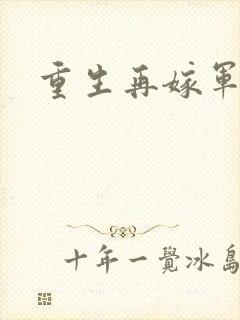 重生再嫁軍
十年一覺冰島